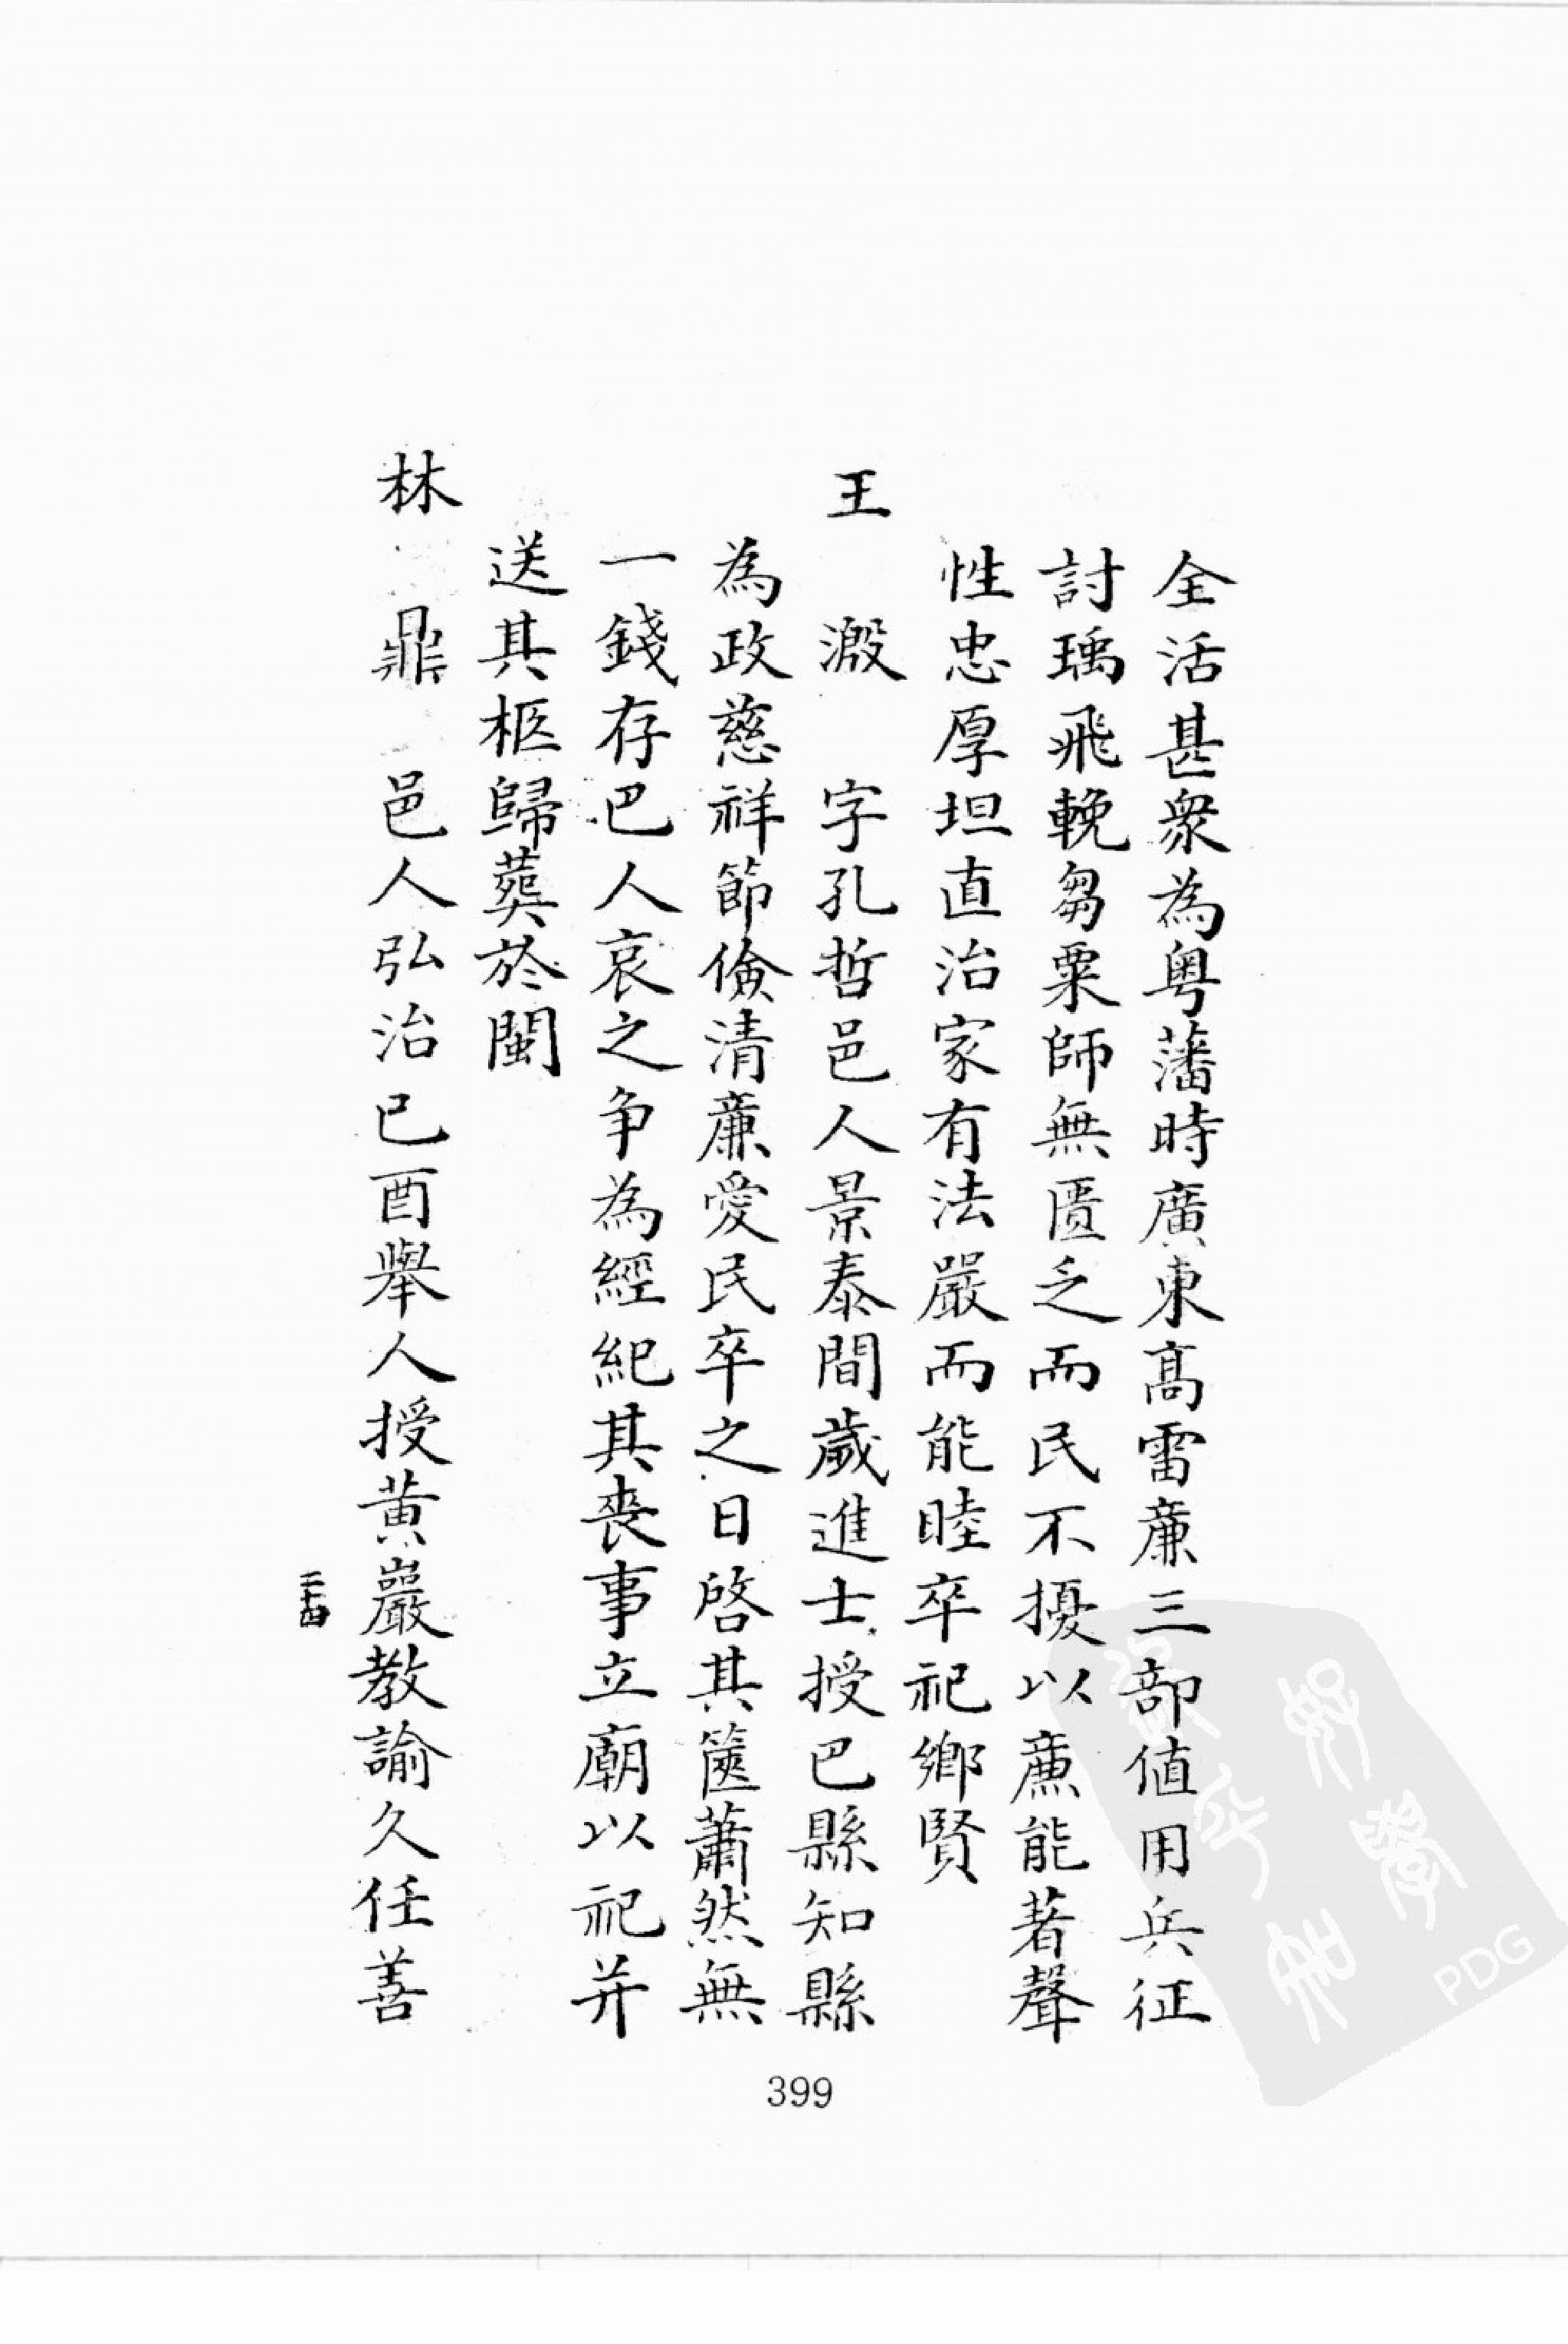 全活甚衆為粤藩時廣東高雷廉三部值用兵征
討瑀飛輓芻粟師無匱乏而民不擾以廉能著聲
性忠厚坦直治家有法嚴而能睦卒祀鄉賢
王　　字孔哲邑人景泰間歲進士授巴縣知縣
為政慈祥節儉清廉愛民卒之日啓其篋蕭然無
一錢存巴人哀之争為經紀其喪事立廟以祀并
送其柩歸葬於閩
林　鼎　邑人弘治己酉舉人授黄巖教諭久任善
399
PDG